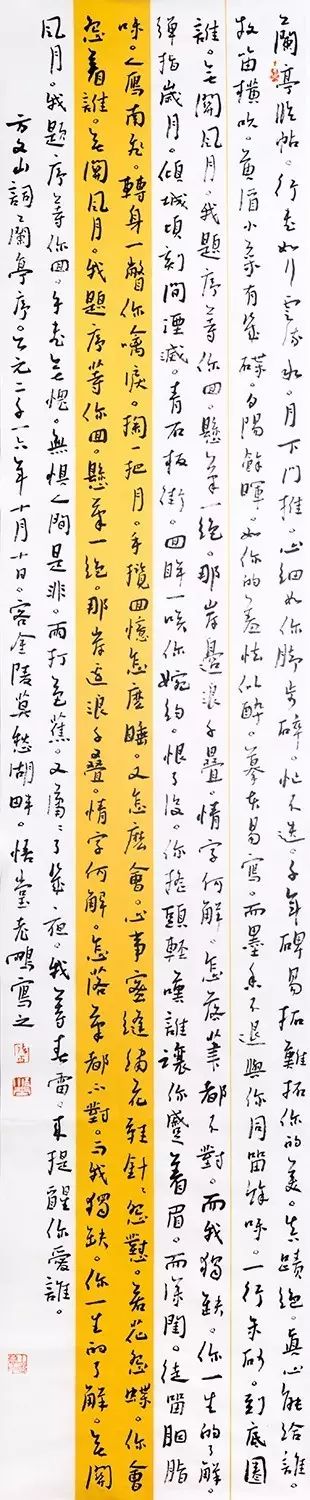 蘭亭臨帖。行書如行雲流水。月下門推。心細如你腳步碎。忙不迭。千年碑易拓難拓你的美。真蹟絕。真心能給誰。
牧笛橫吹。黃酒小菜有幾碟。夕陽餘暉。如你的羞怯似醉。摹本易寫。而墨香不退與你同留餘味。一行朱砂。到底圈
誰。無關風月。我題序等你回。懸筆一絕。那岸邊浪千疊。情字何解。怎落筆都不對。而我獨缺。你一生的了解。
彈指歲月。傾城頃刻間湮滅。青石板街。回眸一笑你婉約。恨了沒。你搖頭輕嘆誰讓你蹙着眉。而深閨。徒留胭脂
味。人雁南飛。轉身一瞥你噙淚。掬一把月。手攬回憶怎麼睡。又怎麼會。心事密縫繡花鞋針々怨懟。若花怨蝶。你會
怨着誰。無關風月。我題序等你回。懸筆一絕。那岸邊浪千疊。情字何解。怎落筆都不對。而我獨缺。你一生的了解。無關
風月。我題序等你回。手書無愧。無懼人間是非。雨打芭蕉。又瀟々了幾夜。我等春雷。來提醒你愛誰。
方文山詞蘭亭序。公元二千一六年十月十日。客金陵莫愁湖畔。悟堂老鴨寫之